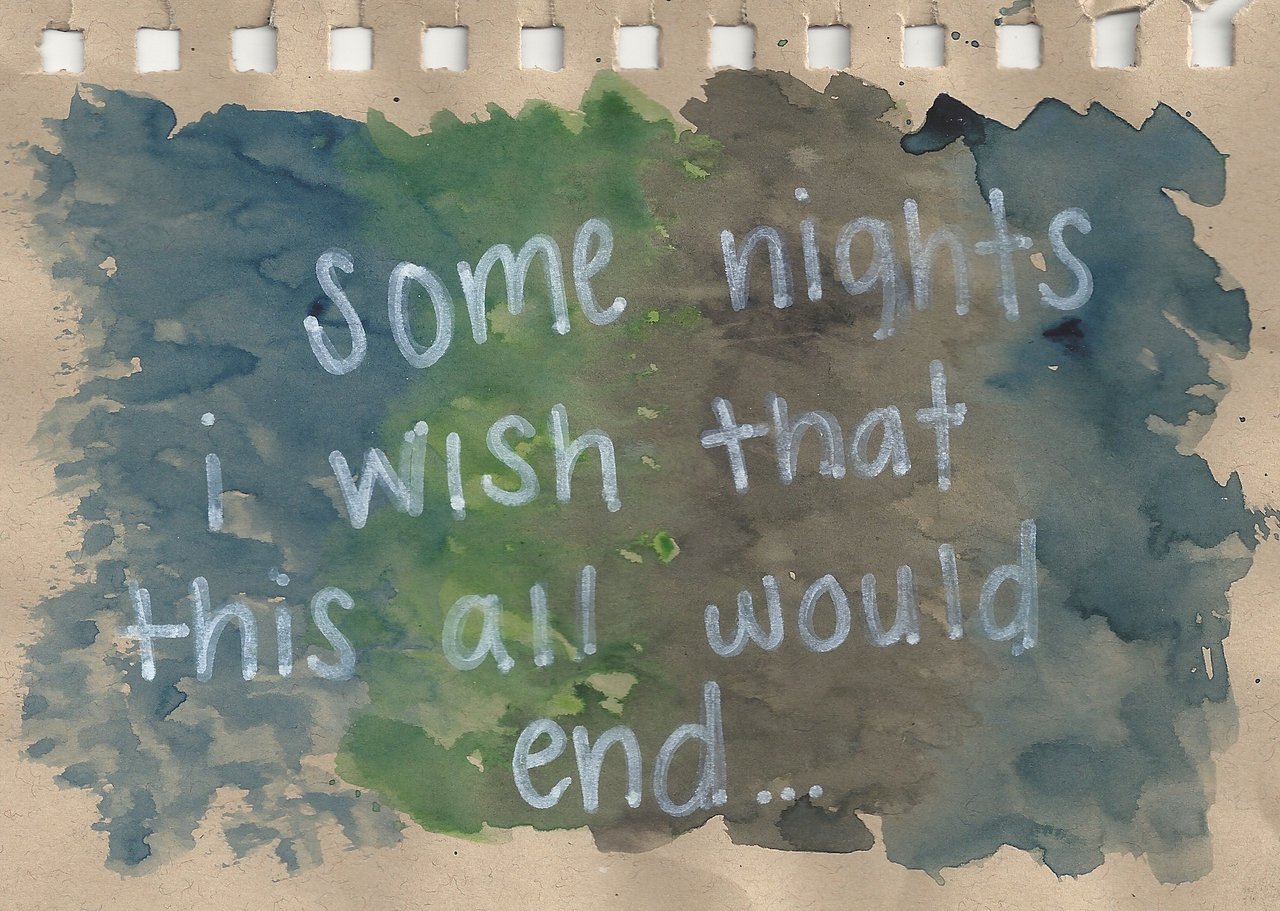 some nights
i wish that
this all would
end...